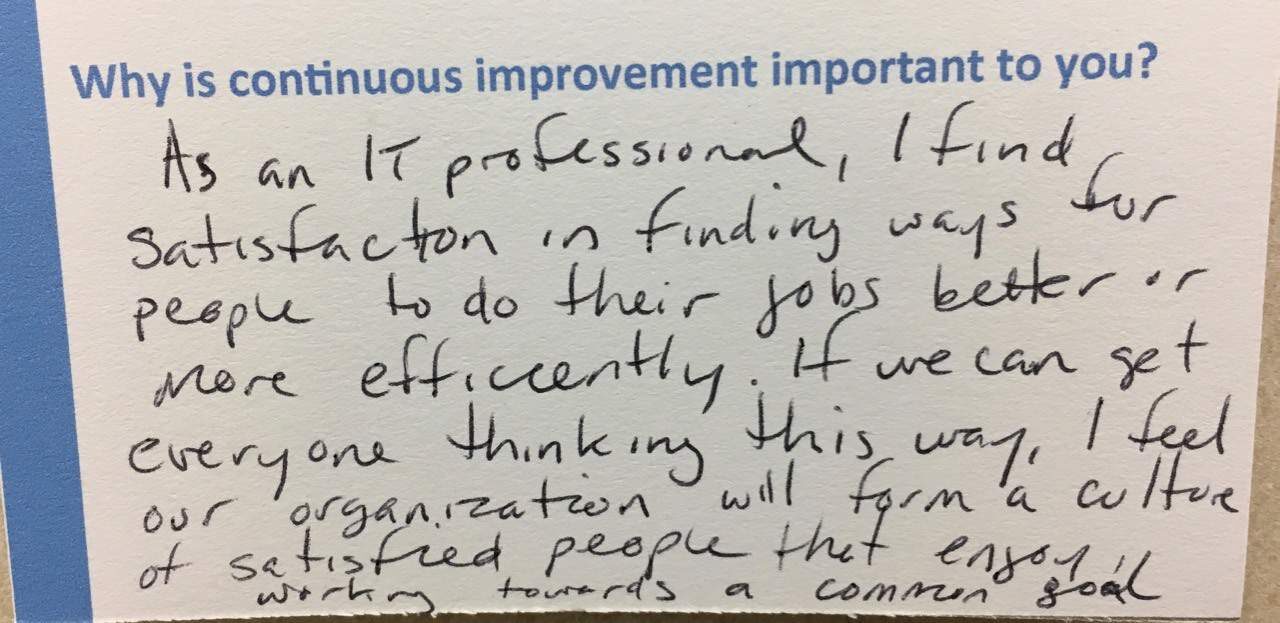 Why is continuous improvement important to you?
As an IT professional, I find
satisfaction in finding ways for
people to do their jobs better or
more efficiently. If we can get
everyone thinking this way, I feel
our organization will form a culture
of satisfied people that enjoy
working towards a common goal